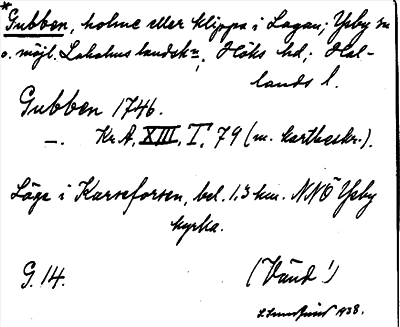 *Gubben, holme eller klippa i Lagan; Ysby sn
o. möjl. Laholms landskn, Höks hd; Hal-
lands l.
Gubben 1746.
—. Kr.A. XIII, I, 79 (m. kartbeskr.).
Läge i Karseforsen, bel. 1.3 km. NNÖ Ysby
kyrka.
G. 14. (Vänd!)
1938.